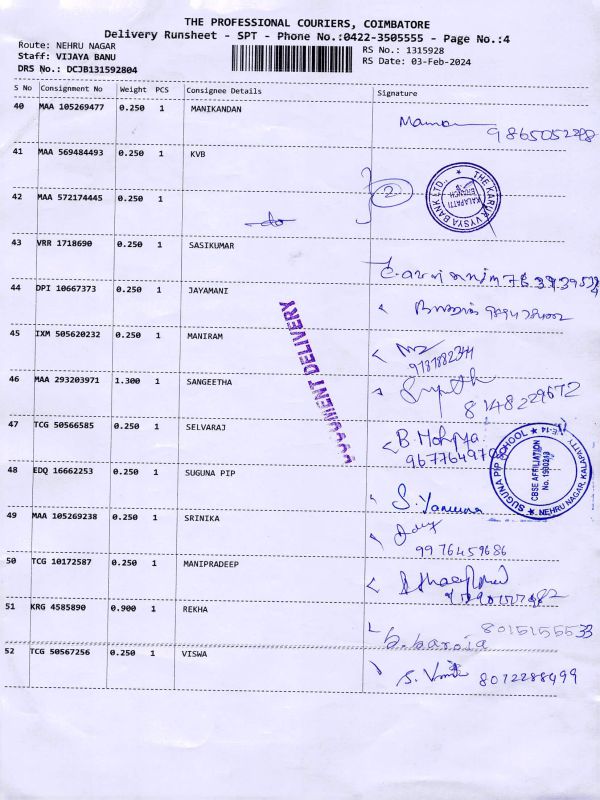 THE PROFESSIONAL COURIERS, COIMBATORE
Delivery Runsheet - SPT - Phone No.:0422-3505555 - Page No.:4
Route: NEHRU NAGAR
RS No.: 1315928
Staff: VIJAYA BANU
RS Date: 03-Feb-2024
DRS No.: DCJB131592804
S No Consignment No Weight PCS Consignee Details Signature
40 MAA 105269477 0.250 1 MANIKANDAN
9865052298
41 MAA 569484493 0.250 1 KVB
2
THE KARUR VYSYA BANK LTD.,
KALAPATTI
BRANCH
42 MAA 572174445 0.250 1
do
43 VRR 1718690 0.250 1 SASIKUMAR
44 DPI 10667373 0.250 1 JAYAMANI
45 IXM 505620232 0.250 1 MANIRAM
9787882344
46 MAA 293203971 1.300 1 SANGEETHA
8148229672
DOCUMENT DELIVERY
47 TCG 50566585 0.250 1 SELVARAJ
B
SUGUNA PIP SCHOOL
NEHRU NAGAR, KALAPATTY
CBSE AFFILIATION
No. 1930213
48 EDQ 16662253 0.250 1 SUGUNA PIP
S. Yamuna
49 MAA 105269238 0.250 1 SRINIKA
9976459686
50 TCG 10172587 0.250 1 MANIPRADEEP
51 KRG 4585890 0.900 1 REKHA
8015155533
b. baroja
52 TCG 50567256 0.250 1 VISWA
S. 8072288499